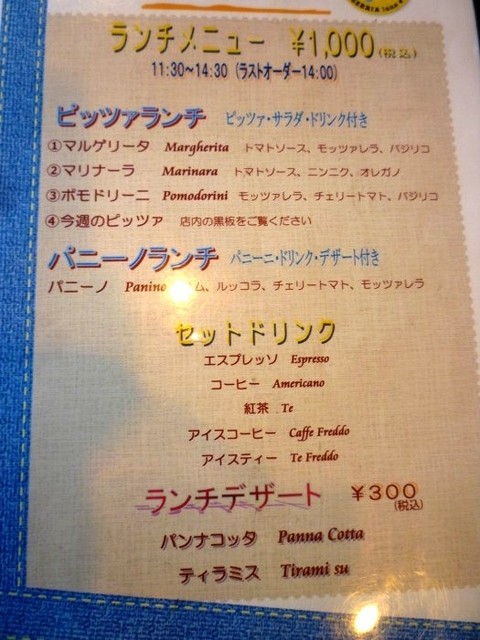 ランチメニュー ¥1,000(税込)
11:30~14:30 (ラストオーダー14:00)
ピッツァランチ ピッツァ・サラダ・ドリンク付き
①マルゲリータ Margherita トマトソース、モッツァレラ、バジリコ
②マリナーラ Marinara トマトソース、ニンニク、オレガノ
③ポモドリーニ Pomodorini モッツァレラ、チェリートマト、バジリコ
④今週のピッツァ 店内の黒板をご覧ください
パニーノランチ パニーニ・ドリンク・デザート付き
パニーノ Panino ム、ルッコラ、チェリートマト、モッツァレラ
セットドリンク
エスプレッソ Espresso
コーヒー Americano
紅茶 Te
アイスコーヒー Caffe Freddo
アイスティー Te Freddo
ランチデザート ¥300
(税込)
パンナコッタ Panna Cotta
ティラミス Tirami su